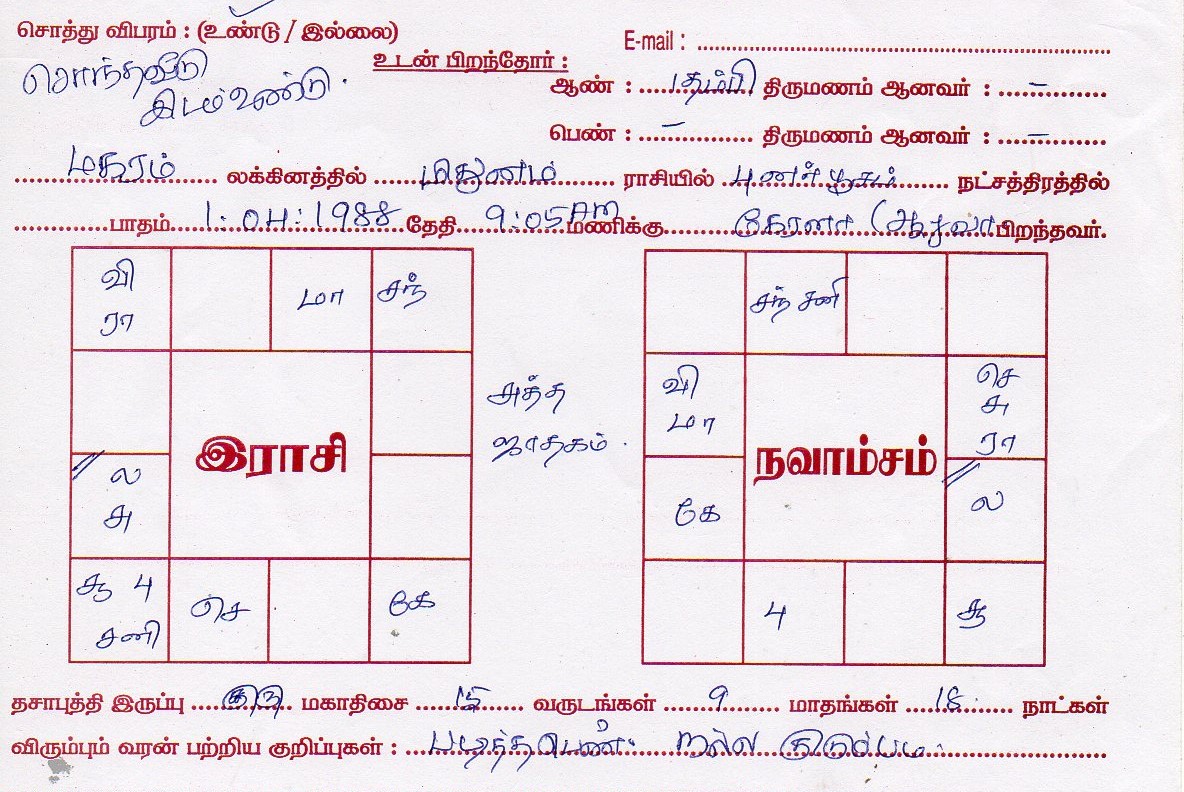 சொத்து விபரம் : (உண்டு / இல்லை)
E-mail :
சொந்தவீடு
உடன் பிறந்தோர் :
இடம் உண்டு.
ஆண் : தம்பி திருமணம் ஆனவர் : –
பெண் : – திருமணம் ஆனவர் : –
மகரம் லக்கினத்தில் மிதுனம் ராசியில் புனர்பூசம் நட்சத்திரத்தில்
பாதம் 1:04:1988 தேதி 9:05 AM மணிக்கு பிறந்தவர்.
வி
ரா
மா
சந்
ல
சு
சூ 4
சனி
செ
கே
இராசி
அத்த
ஜாதகம்.
சந் சனி
வி
மா
செ
சு
ரா
கே
ல
4
சூ
நவாம்சம்
தசாபுத்தி இருப்பு குரு மகாதிசை 15 வருடங்கள் 9 மாதங்கள் 18 நாட்கள்
விரும்பும் வரன் பற்றிய குறிப்புகள் : படித்த பெண். நல்ல குடும்பம்.